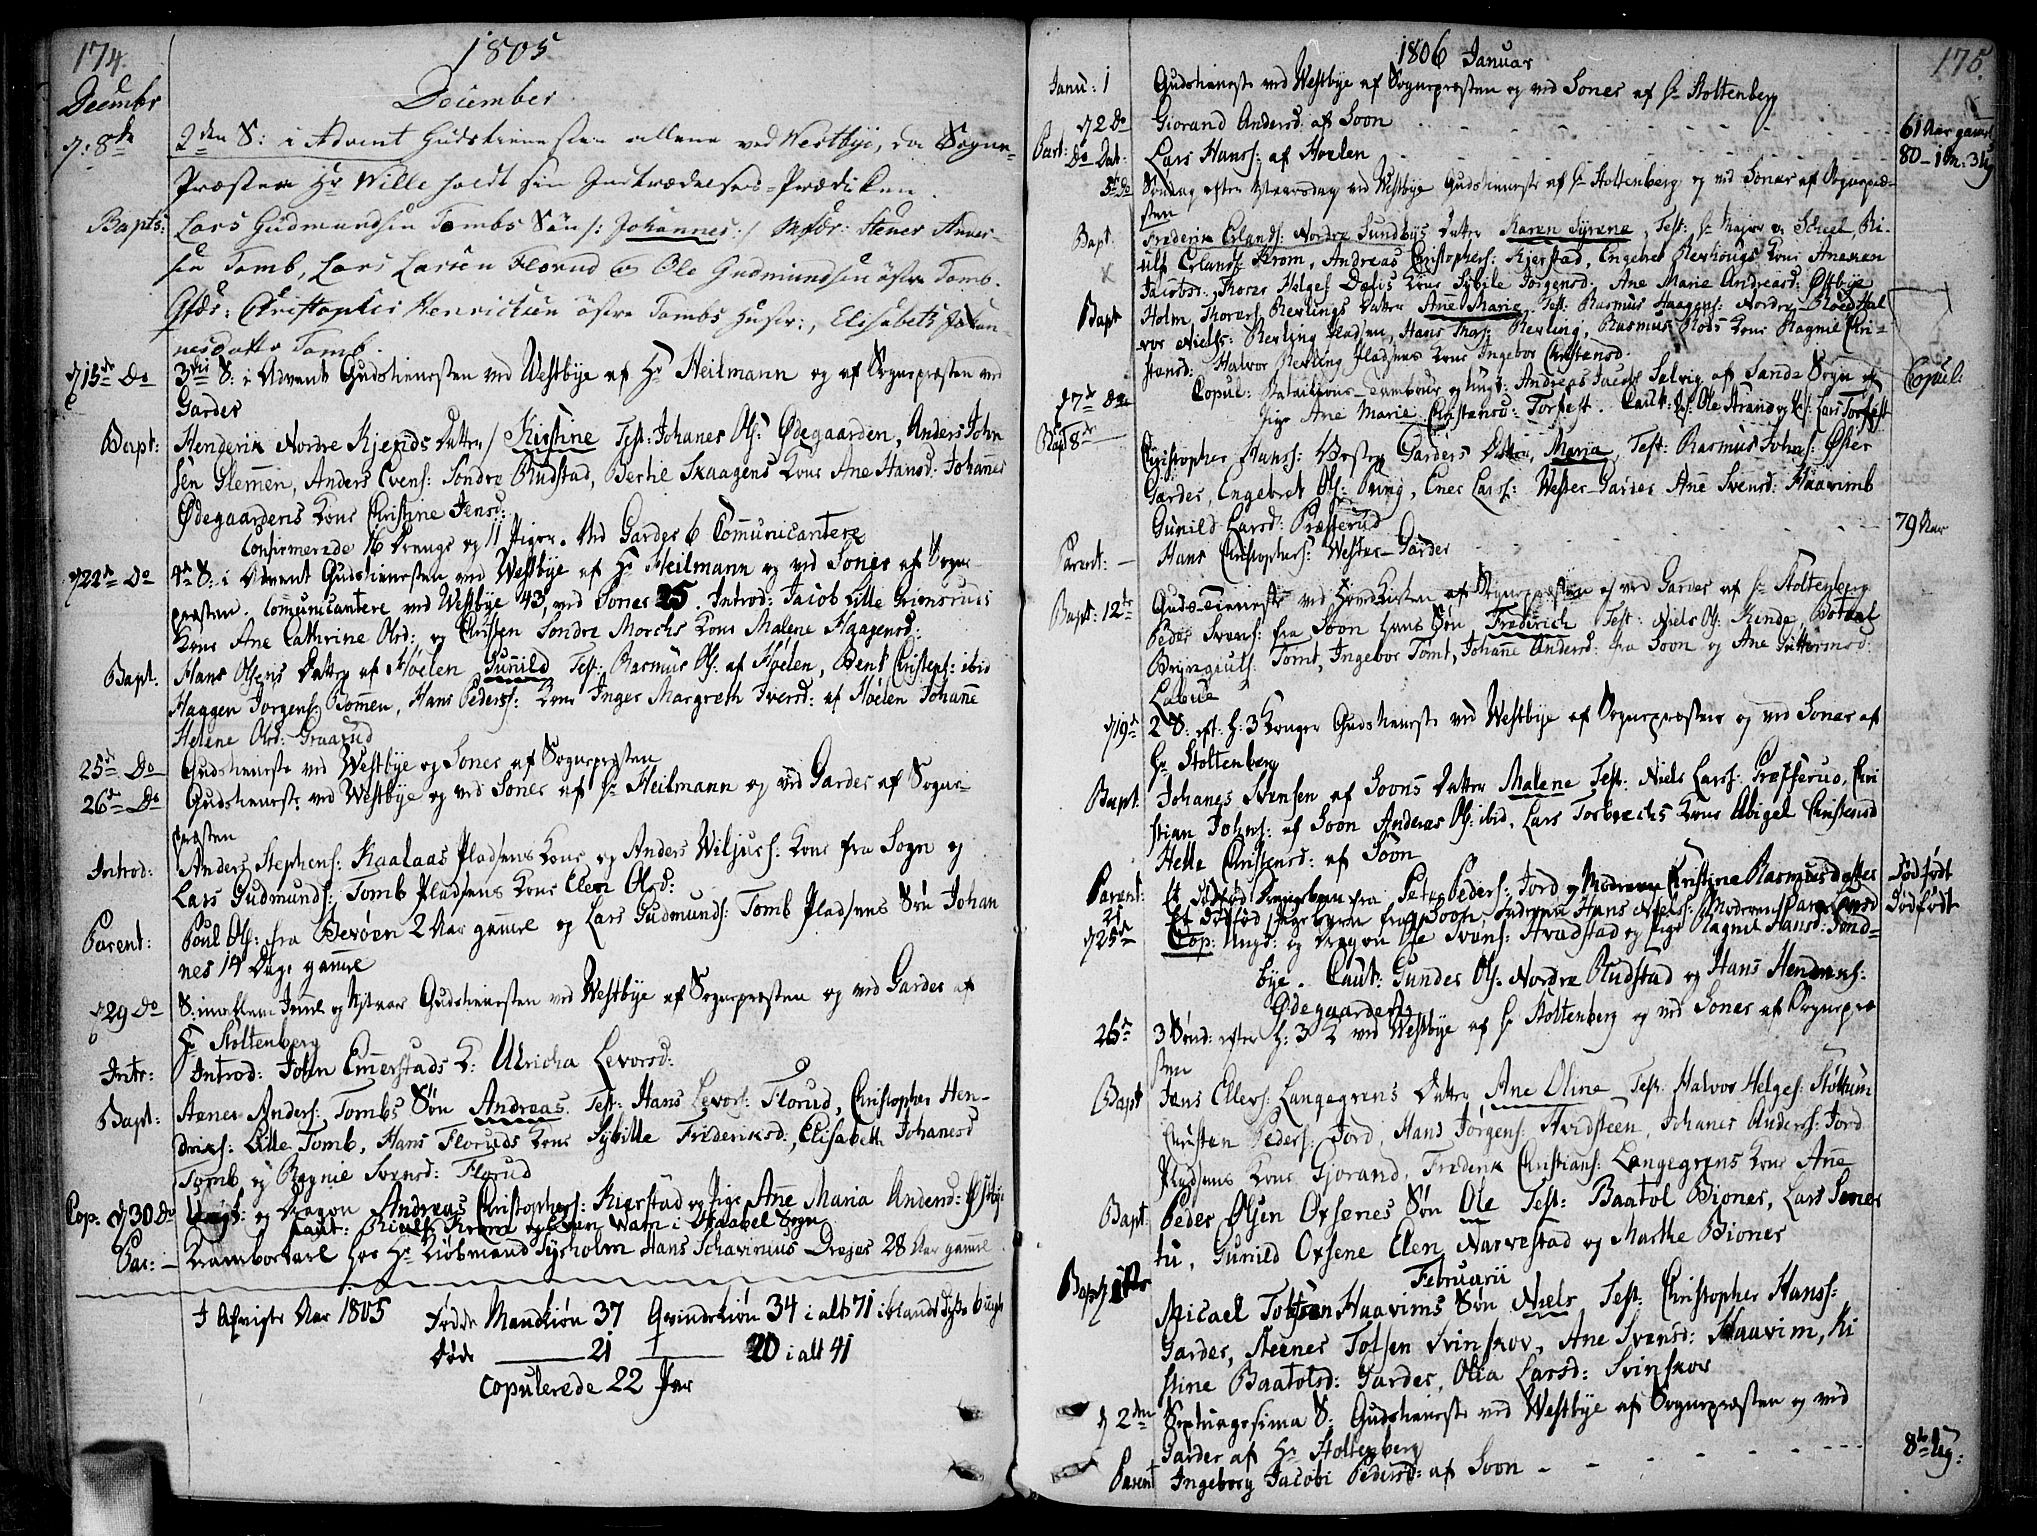 174.
1805
Decembr
December
d: 8de
2den S: i Advent Gudstienesten allene ved Westbye, da Sogne-
Præsten Hr Wille holdt sin Indtrædelses-Prædiken
Bapts: Lars Gudmundsen Tombs Søn /: Johannes :/ Mfdr: Stener Ander-
sen Tomb, Lars Larsen Florud og Ole Gudmundsen østre Tomb.
Qfdr: Christopher Henrichsen østre Tombs Hustr:, Elisabeth Johan-
nesdatter Tomb.
d 15de Do 3die S: i Advent Gudstienesten ved Westbye af Hr Heilmann og af Sognepræsten ved
Garder
Bapt: Henderik Nordre Kjernds Datter / Kistine Test: Johanes Ols: Ødegaarden, Anders John
sen Glemmen, Anders Evens: Søndre Rudstad, Bertil Skaagens Kone Ane Hansd: Johannes
Ødegaardens Kone Christine Jensd:
Confirmerede 16 Drenge og 11 Piger. Ved Garder 6 Communicantere
d 22de Do 4de S: i Advent Gudstienesten ved Westbye af Hr Heilmann og ved Soner af Sogne-
præsten. Communicantere ved Westbye 43, ved Soner 25. Introd: Jacob Lille Grimsruds
Kone Ane Cathrine Olsd: og Christen Søndre Morchs Kone Malene Haagensd:
Bapt: Hans Olsens Datter af Høelen Gunild Test: Rasmus Ols: af Høelen, Bent Christophs: ibid
Haagen Jørgens: Bommen, Hans Peders: Kone Inger Margreth Iversd: af Høelen Johanne
Helene Olsd: Graarud
25de Do Gudstieneste ved Westbye og Soner af Sognepræsten
26de Do Gudstieneste ved Westbye og ved Soner af Hr Heilmann og ved Garder af Sogne-
præsten
Introd: Anders Stephens: Kaalaas Pladsens Kone og Anders Wiljurs: Kone fra Sogn og
Lars Gudmunds: Tomb Pladsens Kone Elen Olsd:
Parent: Poul Ols: fra Bevøen 2 Aar gamel og Lars Gudmunds: Tomb Pladsens Søn Johan
nes 14 Dage gamel
d 29 Do S: imellem Juul og Nytaar Gudstienesten ved Westbye af Sognepræsten og ved Garder af
Hr Stoltenberg
Intr: Introd: John Emmerstads K: Ulricha Levorsd:
Bapt: Stener Anders: Tombs Søn Andreas. Test: Hans Levors: Florud, Christopher Hen-
driks: Lille Tomb, Hans Floruds Kone Sybille Frideriksd:, Elisabeth Johanesd
Tomb og Ragnie Svensd: Florud
Cop: d 30 Do Ungk: og Dragon Andreas Christophers: Kierstad og Pige Anne Maria Anders: Østbye
Caut: Riulf Krom og Even Watn i Skaabel Sogn
Par: Kramborkarl hos Hr Kiøbmand Syrholm Hans Schavinius Drejer 28 Aar gamel
I Afvigte Aar 1805 Fødde Mandkiøn 37 Qvindekiøn 34 i alt 71 iblandt disse 6 uægte
Døde 21 20 i alt 41
Copulerede 22 Par
1806 Januar
175.
Janu: 1 Gudstieneste ved Westbye af Sognepræsten og ved Soner af Hr Stoltenberg
d 2 Do Giorand Andersd: af Soon 61 Aar gamel
Part: Do Dat. Lars Hanss: af Hoelen 80 - 1 M: 3 Ug
5te Do Søndag efter Nyaarsdag ved Westbye Gudstieneste af Hr Stoltenberg og ved Soner af Sognepræ-
sten
Bapt. Frederik Erlands: Nordre Sundbyes Datter Karen Syrene, Test: Hr Major v. Scheel, Ri-
ulf Erlands: Krom, Andreas Christophers: Kjerstad, Engebret Revhougs Kone Anemen
Jacobsd:, Thorer Helges: Dælis Kone Sybile Jørgensd:, Ane Marie Andreasd: Østbye
Bapt Holm, Thorers Revlings Datter Anne Marie, Test: Rasmus Haagens: Nordre Røed Hal
vor Niels: Revling Pladsen, Hans Thos: Revling, Rasmus Røds Kone Ragnie Chri-
stensd: Halvor Revling Pladsens Kone Ingebor Christensd.
d 7de Do Copul: Batallions-Tambour og Ungk: Andreas Jacobs: Selvig af Sande Sogn og Copul:
Pige Ane Marie Christensd: Torfest. Caut: Hr Ole Strand og Hr Lars Torfest
Bapt 8de Christopher Hanss: Vestre Garders Datter, Maria, Test: Rasmus Johns: Øster
Garder, Engebret Ols: Pving, Ener Lars: Wester Garder Ane Svensd: Haavimb
Gunild Larsd: Præsterud
Parent: Hans Christophers: Wester-Garder 79 Aar
Bapt: 12te Guds-Tieneste ved HovedKirken af Sognepræsten og ved Garder af Hr Stoltenberg
Peder Svens: fra Soon hans Søn Frederich Test: Niels Ols: Kinde, Botaal
Bryngiuls: Tomt, Ingebor Tomt, Johanne Andersd: fra Soon og Ane Guttormsd:
Labue
d 19de 2 S: eft: H: 3 Konger Gudstieneste ved Westbye af Sognepræsten og ved Soner af
Hr Stoltenberg
Bapt. Johanes Svensen af Soons Datter Malene Test: Niels Lars: Præsterud, Chri
stian Johns: af Soon Anders Ols: ibid, Lars Torbrechs Kone Abigel Christensd
Helle Christensd: af Soon
Parent: Et dødfød Drengebarn fra Peter Peders: Jord og Moderen Christine Rasmusdatter Dødfødt
21 Et dødfød Pigebarn fra Soon Faderen Hans Niels: Moderen Dødfødt
d 25de Cop: Ungd: og Dragon Ole Svens: Hvidstad og Pige Ragnil Hansd: Sønd-
bye. Caut: Gunder Ols: Nordre Rudstad og Hans Hendriks:
Ødegaarden
26de 3 Sønd: efter H: 3 K ved Westbye af Hr Stoltenberg og ved Soner af Sognepræ
sten
Bapt Jens Ellers: Langegrens Datter, Ane Oline Test: Halvor Helges: Støttum
Christen Peders: Jord, Hans Jørgens: Hvidsteen, Johanes Anders: Jord
Pladsens Kone Gjorand, Frederik Christians: Langegrens Kone Ane
Bapt: Peder Olsen Oxsenes Søn Ole Test: Baatol Bioner, Lars Sener
tu, Gunild Oxsene Elen Narvestad og Marthe Bioner
Februarii
Bapt d 1ste Micael Totsen Haavims Søn Niels, Test: Christopher Hanss:
Garder, Steener Totsen Svinskov, Ane Svensd: Haavim, Ki
stine Baatolsd: Garder, Olia Larsd: Svinskov
d 2den Septuagesima S: Gudstieneste ved Westbye af Sognepræsten og ved
Garder af Hr Stoltenberg
Parent Ingeborg Jacobi Pedersd: af Soon 8te Ug: